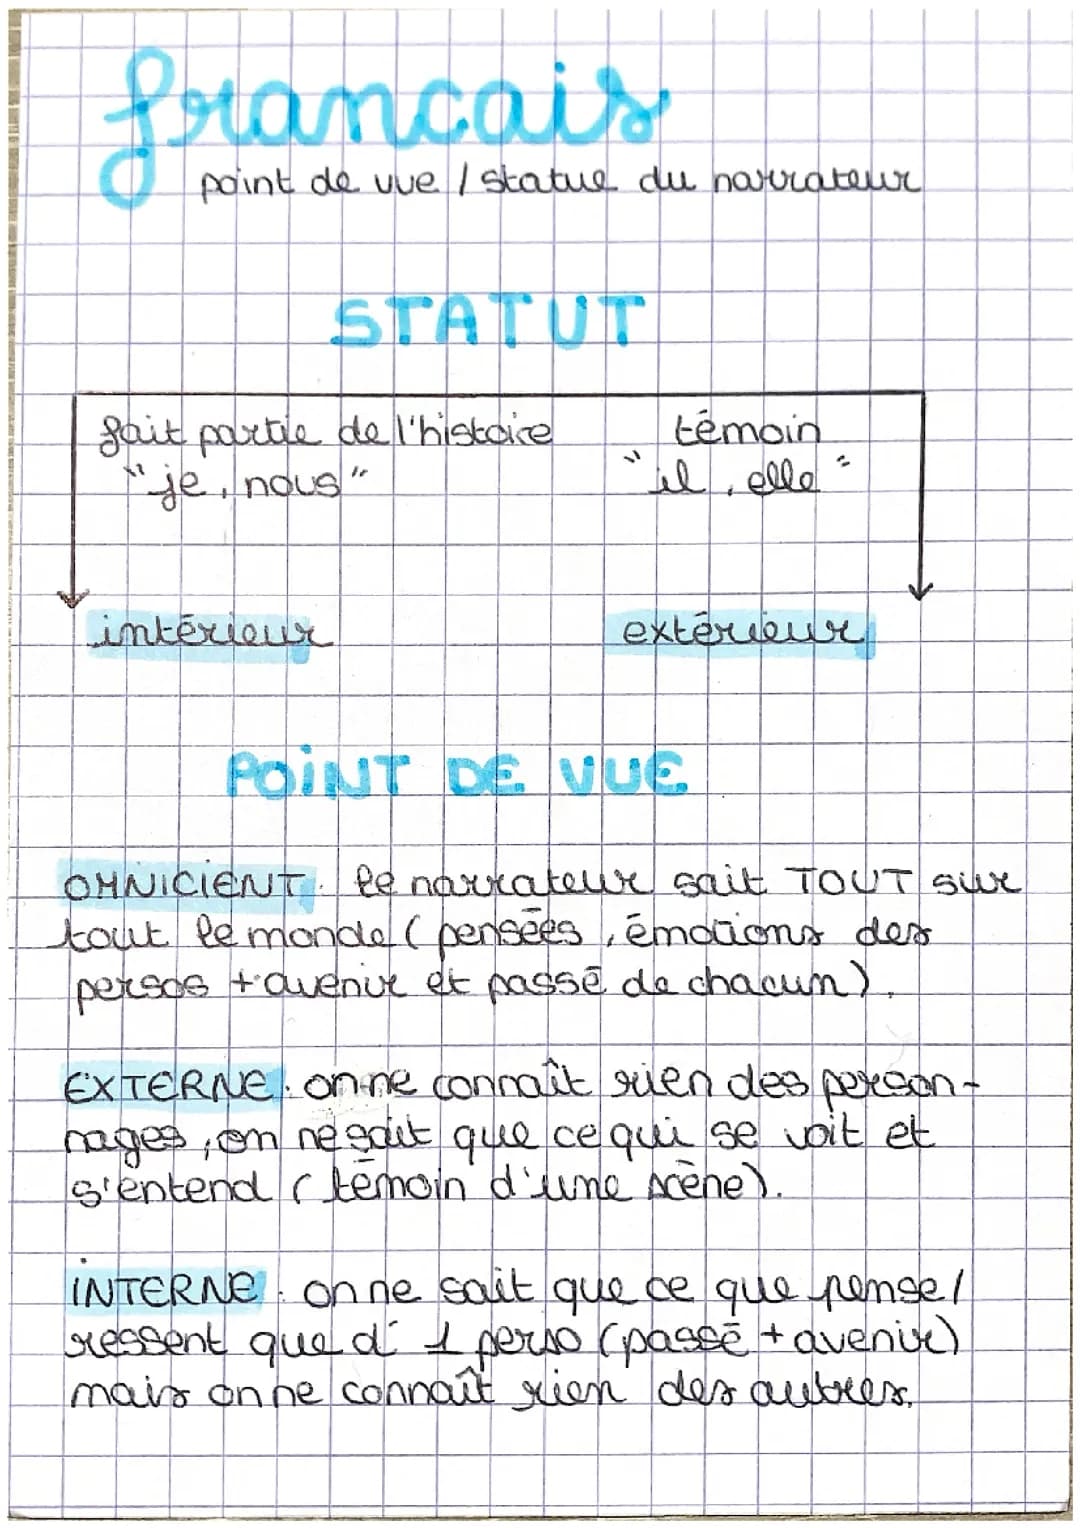 francais
point de vue / statue du narrateur
STATUT
fait partie de l'histoire témoin
"je, nous" "il, elle"
intérieur extérieur
POINT DE VUE
OMNICIENT : le narrateur sait TOUT sur
tout le monde (pensées, émotions des
persos + avenir et passé de chacun).
EXTERNE : on ne connaît rien des person-
nages, on ne sait que ce qui se voit et
s'entend (témoin d'une scène).
INTERNE : on ne sait que ce que pense/
ressent que d' 1 perso (passé + avenir)
mais on ne connaît rien des autres.